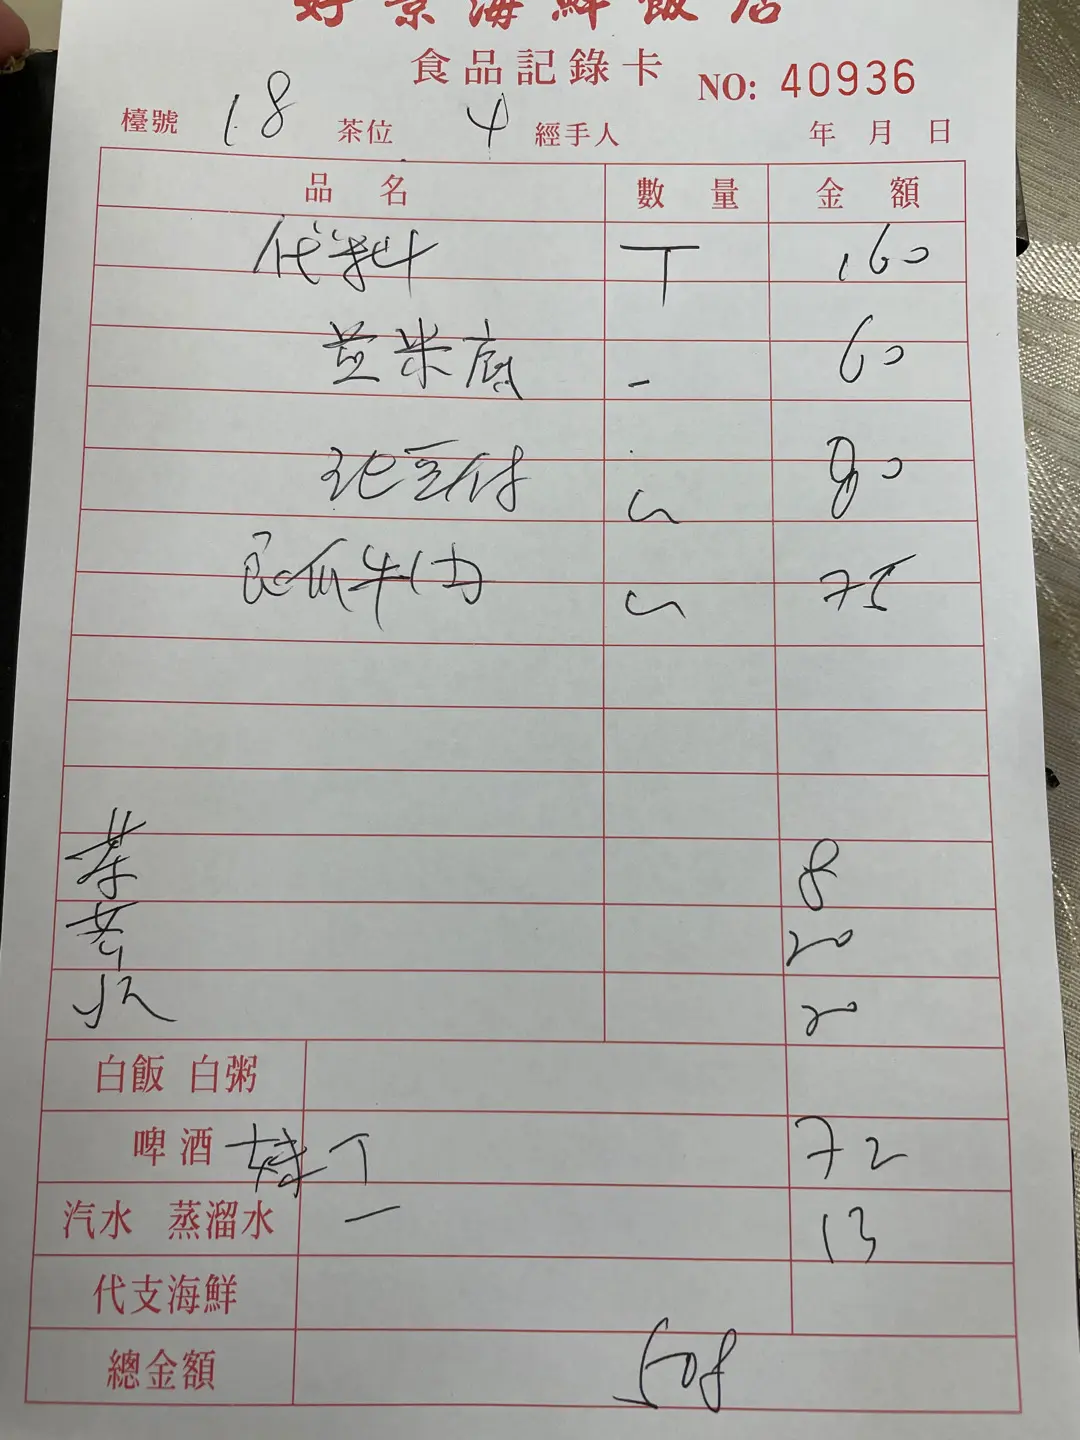 好景海鮮飯店
食品記錄卡 NO: 40936
檯號 18 茶位 4 經手人 年 月 日
品 名 數 量 金 額
代料 丅 160
豆付 80
瓜牛 75
茶 8
芥 20
20
白飯 白粥
啤酒 丅 72
汽水 蒸溜水 一 13
代支海鮮
總金額 508